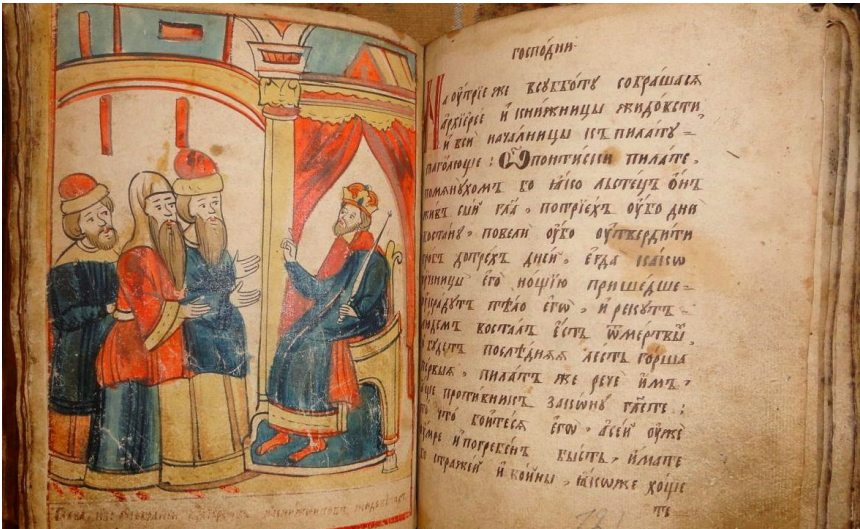 господни
На оутріе же всубботу собрашася
архіерее и книжницы жидовсти,
и вси началницы къ пилату
глаголюще: Ѽ понтіскіи пилате,
помянухомъ бо яко льстецъ онъ
живъ сый гла, потріехъ оубо дни
востану, повели оубо оутвердити
гробъ дотрехъ дней, егда како
ученицы его нощію пришедше
украдутъ тѣло его, и рекутъ
людемъ воста есть ѿмертвы,
и будетъ послѣдняя лесть горша
первыя, пилатъ же рече имъ,
противникъ закону глете:
что боитеся его, асей оуже
умре и погребенъ бысть, имате
бо стражей и войны, якоже хоще
те